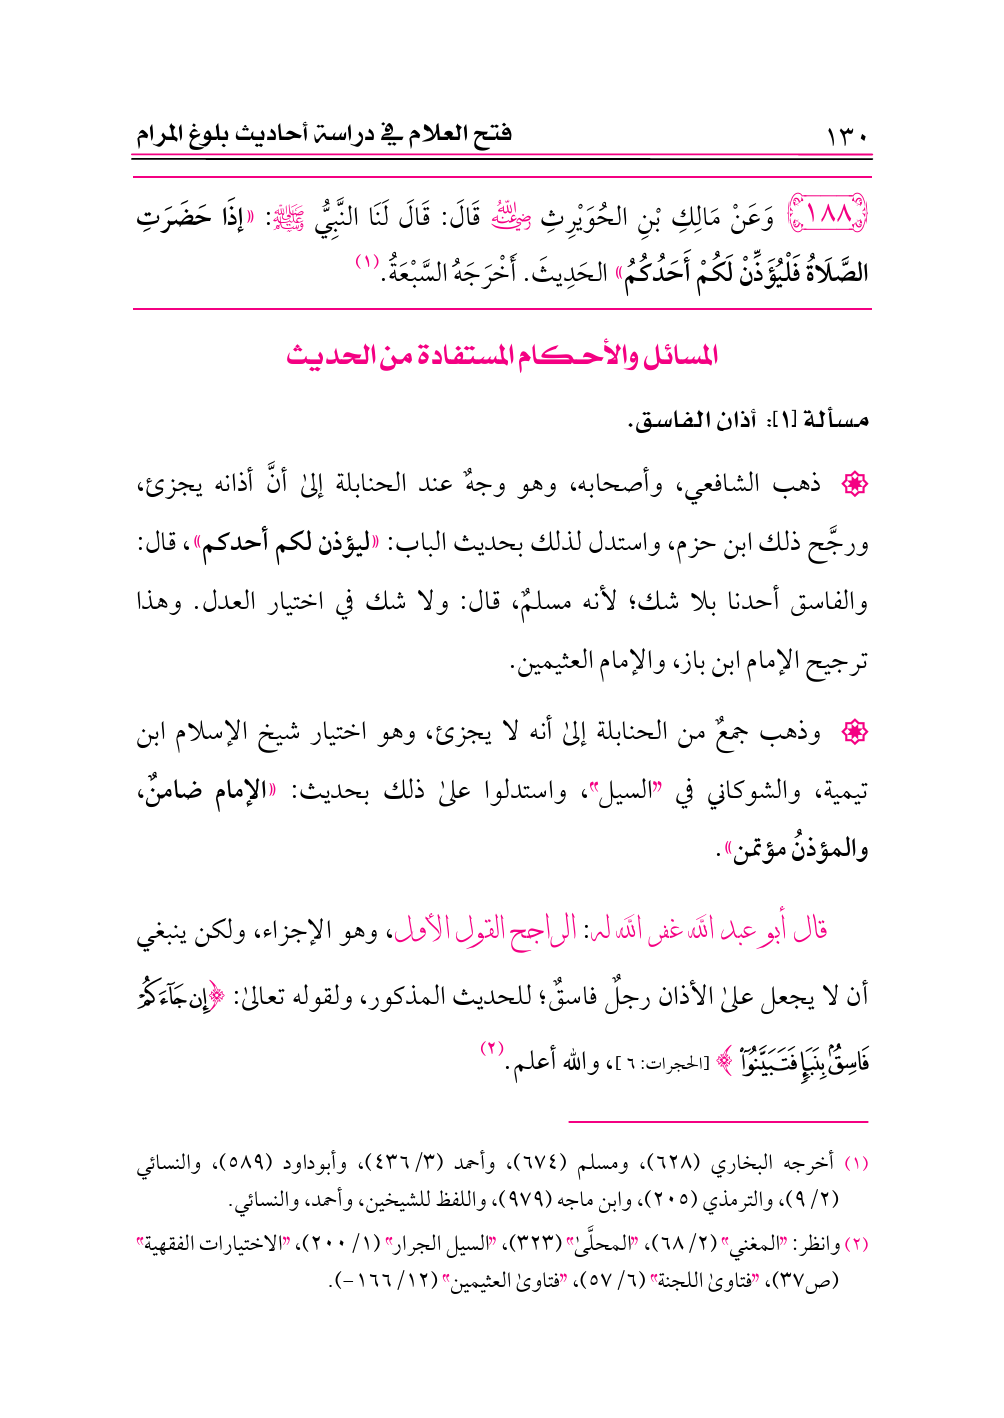 ١٣٠ فتح العلام في دراسة أحاديث بلوغ المرام
١٨٨ وَعَنْ مَالِكِ بْنِ الحُوَيْرِثِ رضي الله عنه قَالَ: قَالَ لَنَا النَّبِيُّ ﷺ: «إِذَا حَضَرَتِ
الصَّلَاةُ فَلْيُؤَذِّنْ لَكُمْ أَحَدُكُمْ» الحَدِيثَ. أَخْرَجَهُ السَّبْعَةُ.(١)
المسائل والأحكام المستفادة من الحديث
مسألة [١]: أذان الفاسق.
ذهب الشافعي، وأصحابه، وهو وجهٌ عند الحنابلة إلىٰ أنَّ أذانه يجزئ،
ورجَّح ذلك ابن حزم، واستدل لذلك بحديث الباب: «ليؤذن لكم أحدكم»، قال:
والفاسق أحدنا بلا شك؛ لأنه مسلمٌ، قال: ولا شك في اختيار العدل. وهذا
ترجيح الإمام ابن باز، والإمام العثيمين.
وذهب جمعٌ من الحنابلة إلىٰ أنه لا يجزئ، وهو اختيار شيخ الإسلام ابن
تيمية، والشوكاني في "السيل"، واستدلوا علىٰ ذلك بحديث: «الإمام ضامنٌ،
والمؤذنُ مؤتمن».
قال أبو عبد الله غفر الله له: الراجح القول الأول، وهو الإجزاء، ولكن ينبغي
أن لا يجعل علىٰ الأذان رجلٌ فاسقٌ؛ للحديث المذكور، ولقوله تعالىٰ: ﴿إِن جَآءَكُمْ
فَاسِقٌۢ بِنَبَإٍ فَتَبَيَّنُوٓا۟﴾ [الحجرات: ٦]، والله أعلم.(٢)
(١) أخرجه البخاري (٦٢٨)، ومسلم (٦٧٤)، وأحمد (٣/ ٤٣٦)، وأبوداود (٥٨٩)، والنسائي
(٢/ ٩)، والترمذي (٢٠٥)، وابن ماجه (٩٧٩)، واللفظ للشيخين، وأحمد، والنسائي.
(٢) وانظر: "المغني" (٢/ ٦٨)، "المحلَّىٰ" (٣٢٣)، "السيل الجرار" (١/ ٢٠٠)، "الاختيارات الفقهية"
(ص٣٧)، "فتاوىٰ اللجنة" (٦/ ٥٧)، "فتاوىٰ العثيمين" (١٢/ ١٦٦-).